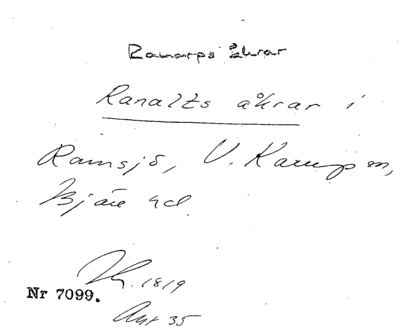 Ranarps åkrar
Ranalts åkrar i
Ramsjö, V. Karup sn,
Bjäre hd.
1819
Nr 7099.
35